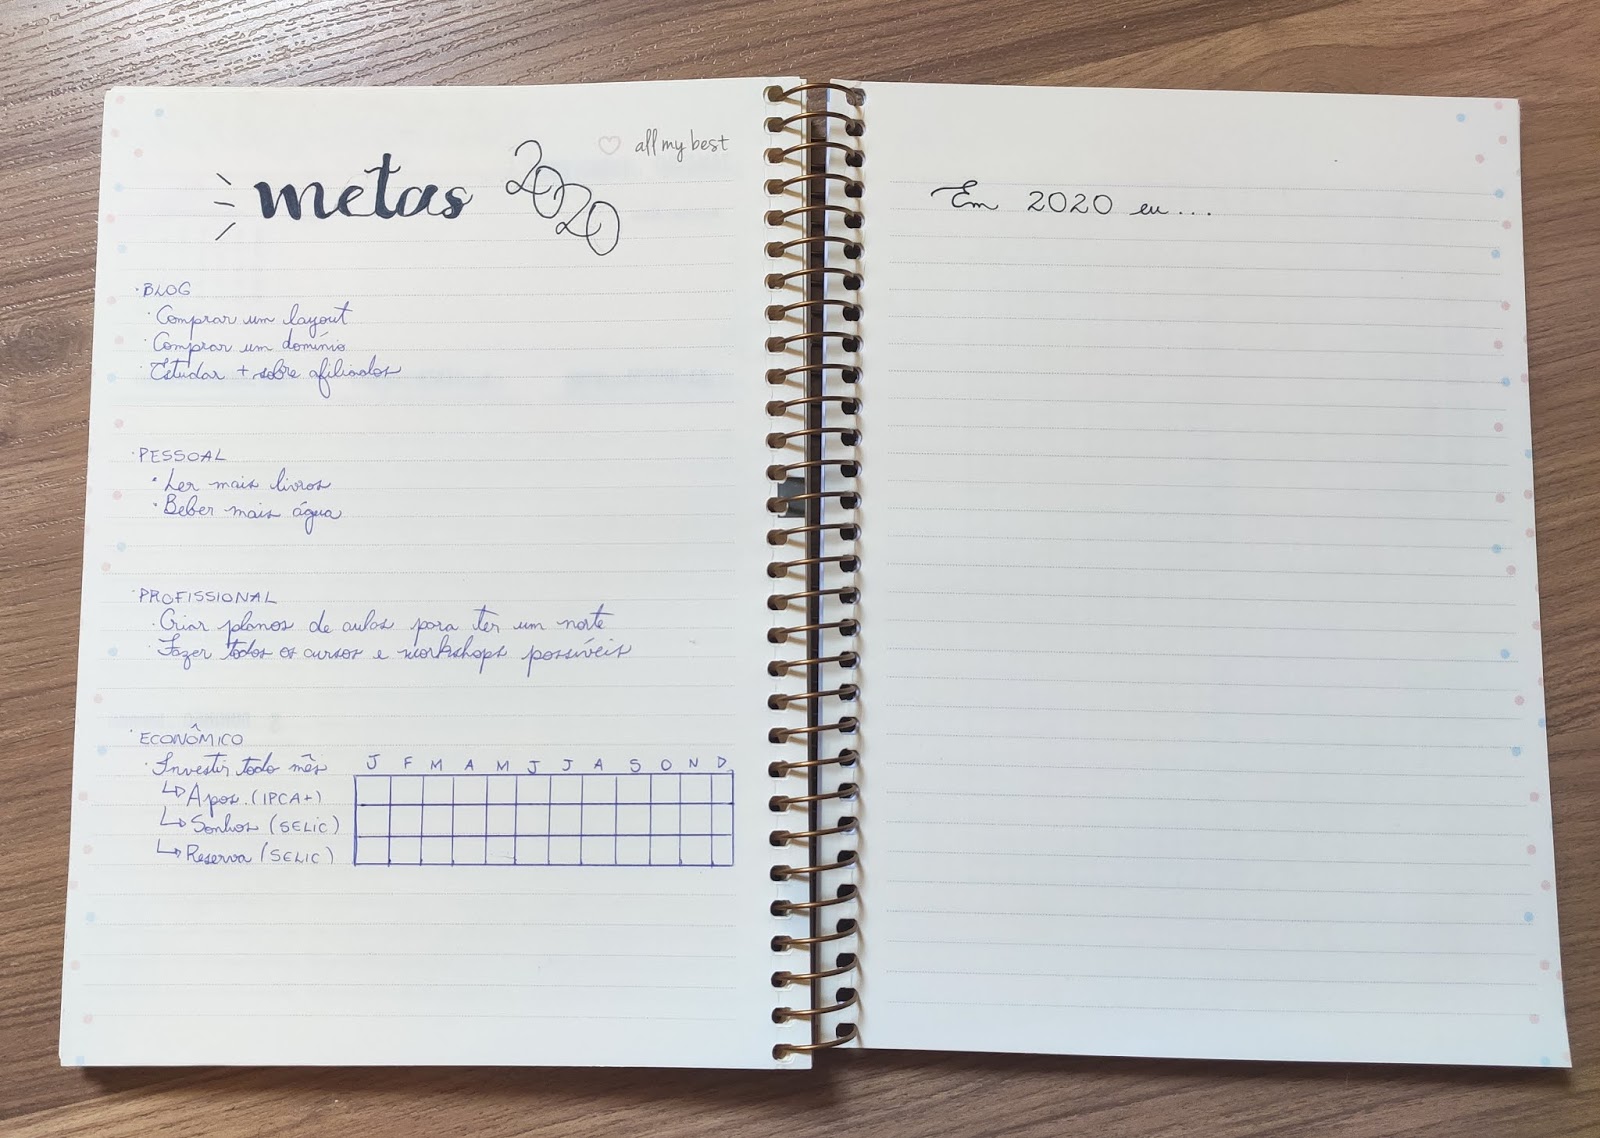 all my best
metas 2020
·BLOG
·Comprar um layout
·Comprar um domínio
·Estudar + sobre afiliados
·PESSOAL
·Ler mais livros
·Beber mais água
·PROFISSIONAL
·Criar planos de aulas para ter um norte
·Fazer todos os cursos e workshops possíveis
·ECONÔMICO
·Investir todo mês J F M A M J J A S O N D
↳ Apos. (IPCA+)
↳ Sonhos (SELIC)
↳ Reserva (SELIC)
Em 2020 eu...